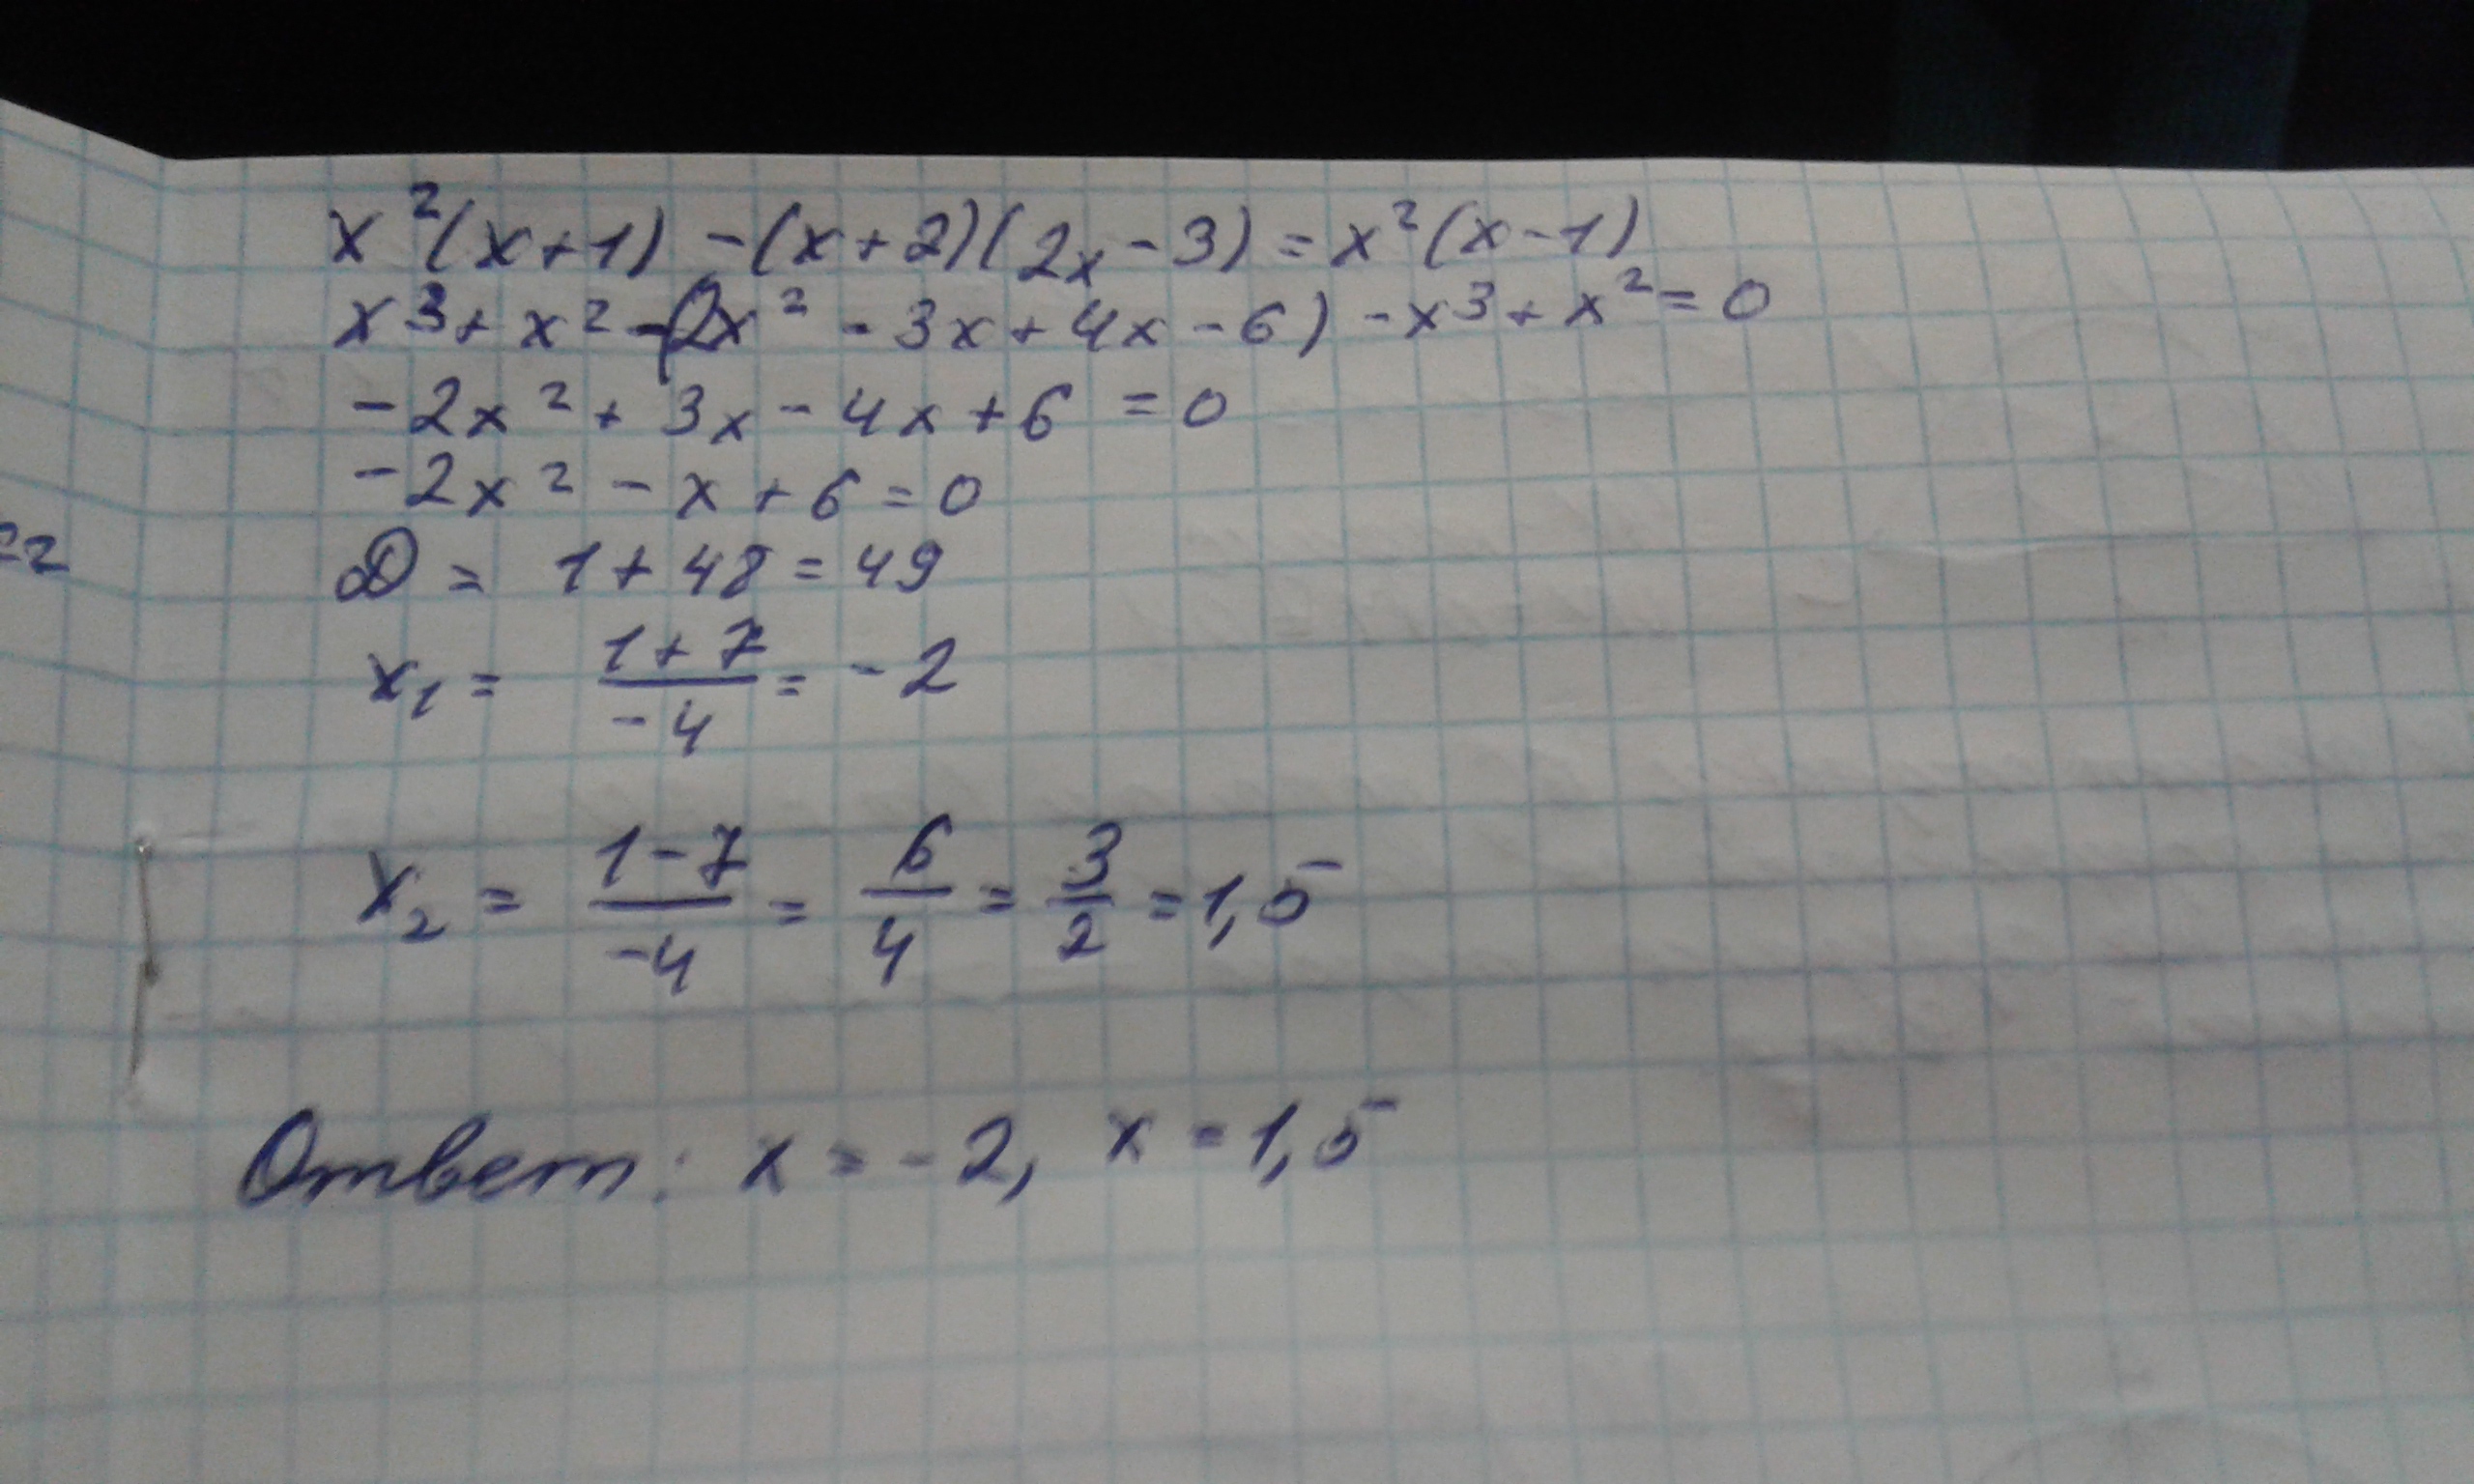 x²(x+1) -(x+2)(2x-3) = x²(x-1)
x³+ x² -(2x² - 3x + 4x - 6) - x³ + x² = 0
- 2x² + 3x - 4x + 6 = 0
- 2x² - x + 6 = 0
D = 1 + 48 = 49
x₁ = (1+7)/(-4) = -2
x₂ = (1-7)/(-4) = 6/4 = 3/2 = 1,5
Ответ: x = -2, x = 1,5